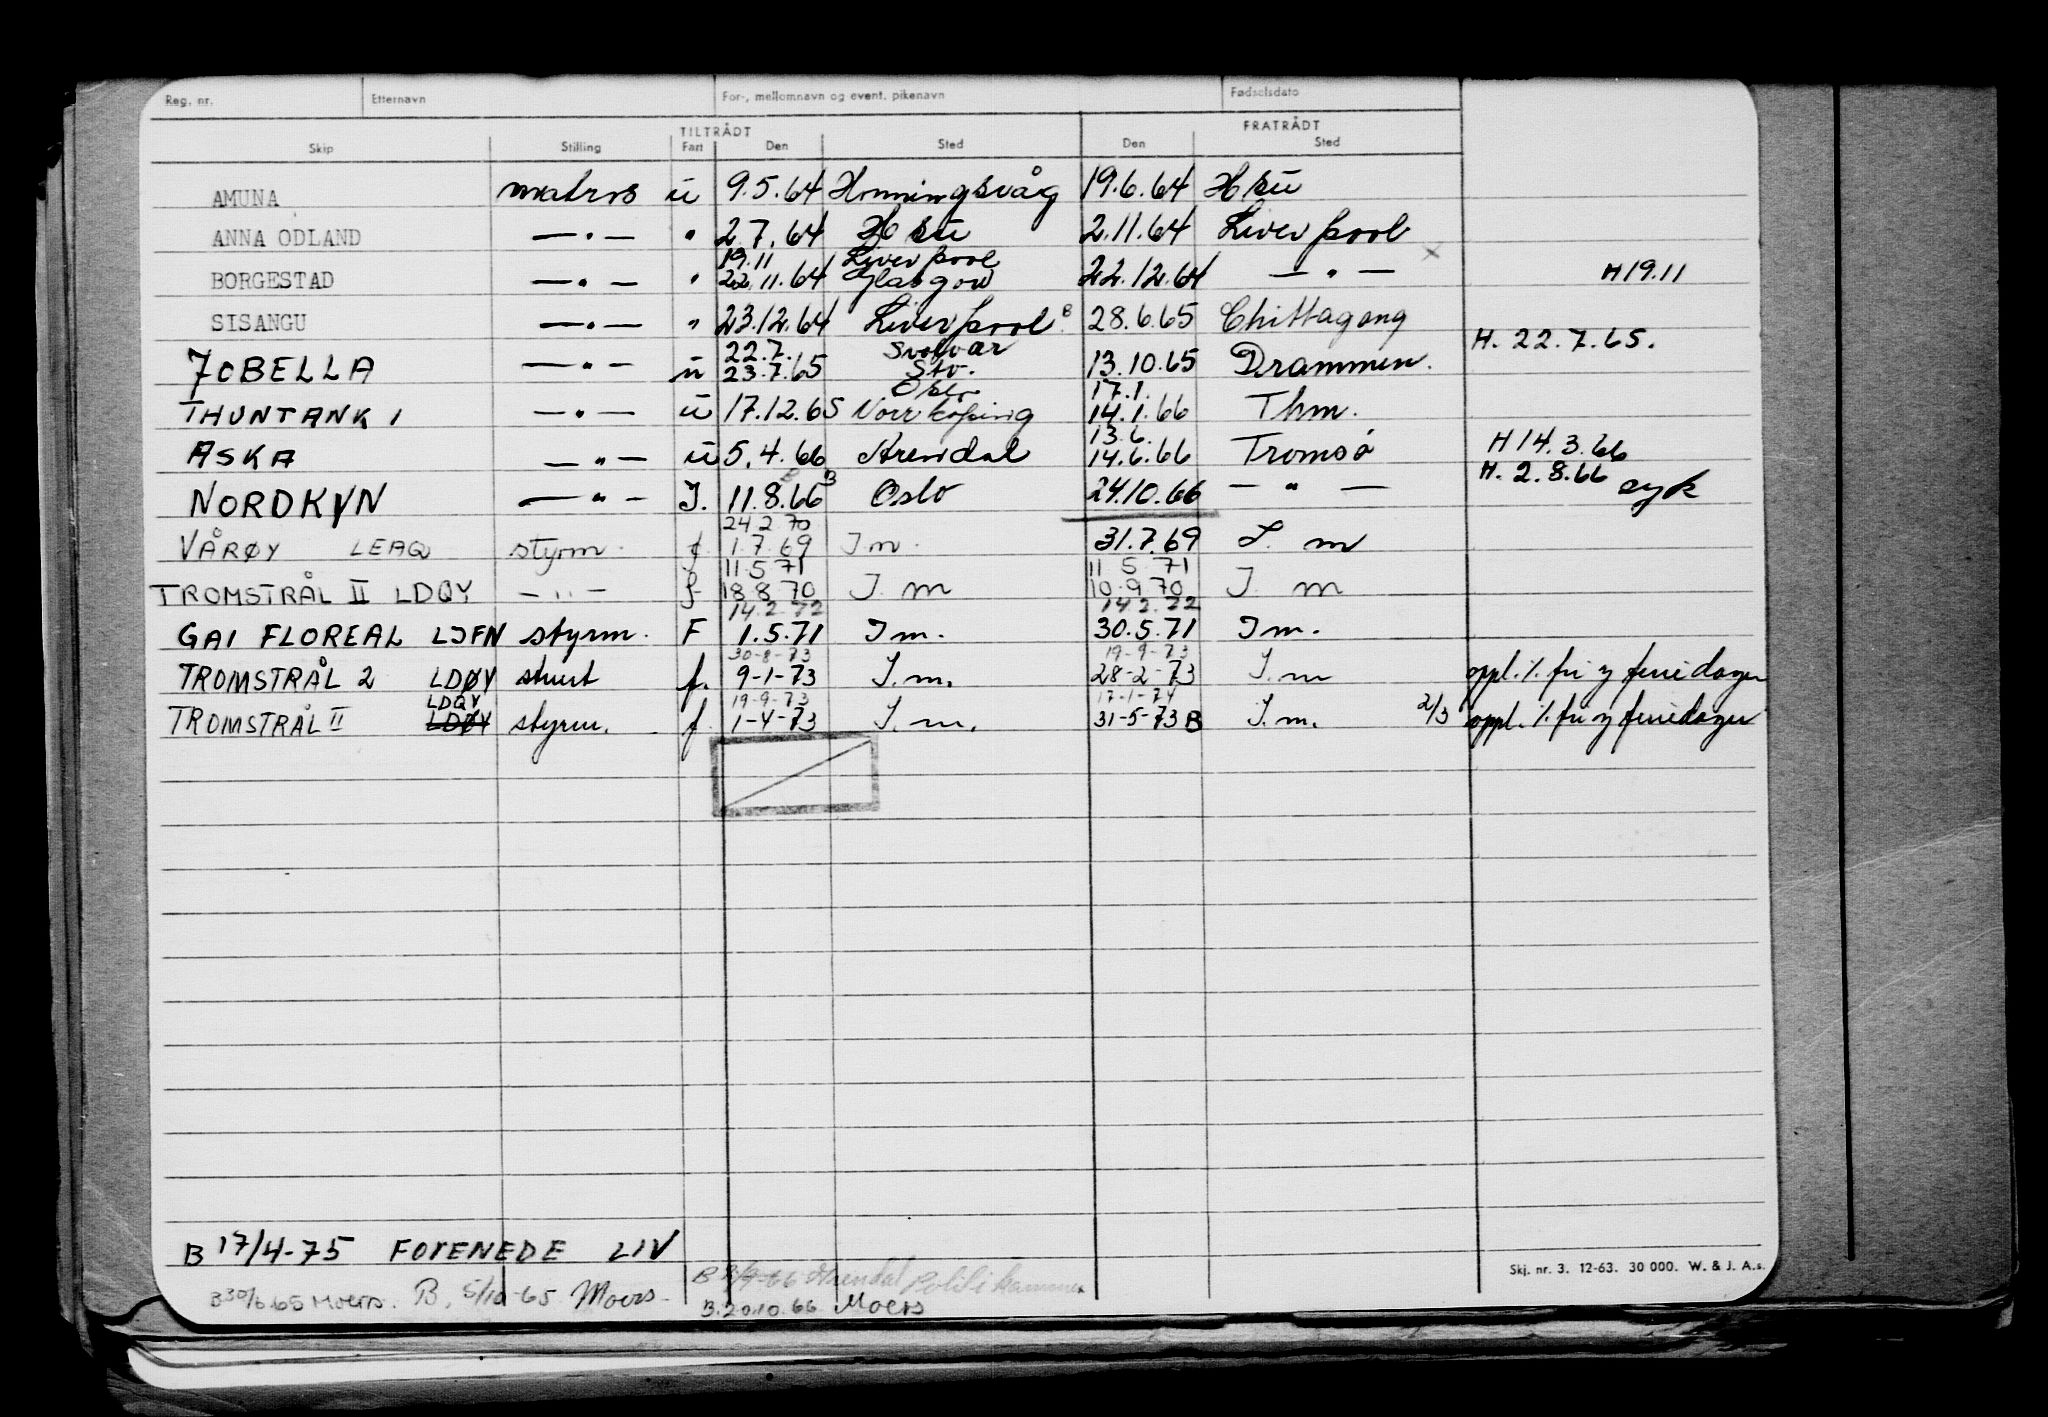 Reg. nr. Etternavn For-, mellomnavn og event. pikenavn Fødselsdato
TILTRÅDT FRATRÅDT
Skip Stilling Fart Den Sted Den Sted
AMUNA matros u 9.5.64 Honningsvåg 19.6.64 Hsu
ANNA ODLAND — " — " 2.7.64 Hsu 2.11.64 Liverpool
19.11 Liverpool
BORGESTAD — " — " 22.11.64 Glasgow 22.12.64 — " — H 19.11
SISANGU — " — " 23.12.64 Liverpool B 28.6.65 Chittagong
22.7. Svolvær H. 22.7.65.
JOBELLA — " — u 23.7.65 Stv. 13.10.65 Drammen.
Oslo 17.1.
THUNTANK 1 — " — u 17.12.65 Norrkøping 14.1.66 Thm.
13.6.
ASKA — " — u 5.4.66 Arendal 14.6.66 Tromsø H 14.3.66
NORDKYN — " — I. 11.8.66 B Oslo 24.10.66 — " — H. 2.8.66 syk
24 2 70
VÅRØY LEAQ styrm. f 1.7.69 I m. 31.7.69 I. m
11.5.71 11 5 71
TROMSTRÅL II LDQY — " — f 18 8 70 I. m 10.9.70 I. m
14.2.72 14 2.72
GAI FLOREAL LJFN styrm. F 1.5.71 I m. 30.5.71 I m.
30-8-73 19-9-73
TROMSTRÅL 2 LDØY stuert f. 9-1-73 I. m. 28-2-73 I. m oppl. % fri og feriedager
LDQY 19-9-73 17-1-74
TROMSTRÅL II LDØY styrm. f 1-4-73 I. m. 31-5-73 B I. m. 2/3 oppl. % fri og feriedager
B 17/4-75 FORENEDE LIV
Skj. nr. 3. 12-63. 30 000. W. & J. A.s.
B 30/6.65 Moers. B. 5/10-65 Moers. Arendal Politikammer
B. 20.10.66 Moers